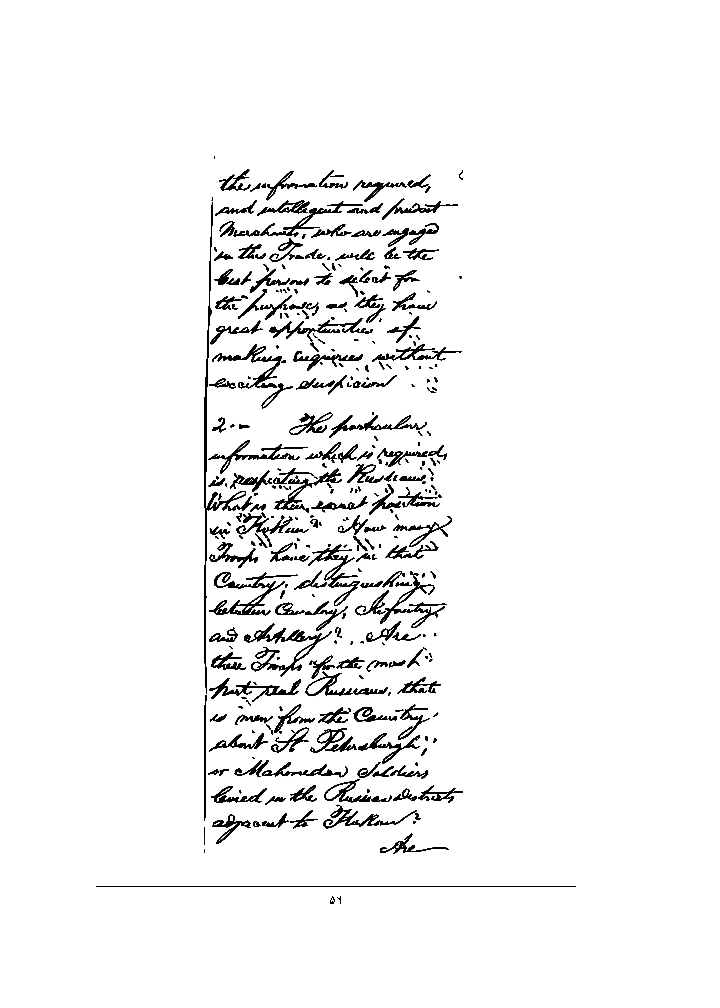 the information required,
and intelligent and prudent
Merchants, who are engaged
in this Trade, will be the
best persons to select for
the purpose, as they have
great opportunities of
making enquiries without
exciting suspicion
2.- The particular
information which is required,
is, respecting the Russians.
What is their exact position
in Kokan? How many
Troops have they in that
Country; distinguishing
between Cavalry, Infantry,
and Artillery? Are
these Troops for the most
part real Russians, that
is men from the Country
about St Petersburgh;
or Mahomedan Soldiers
levied in the Russian districts
adjacent to Kokan?
Are
۵۹